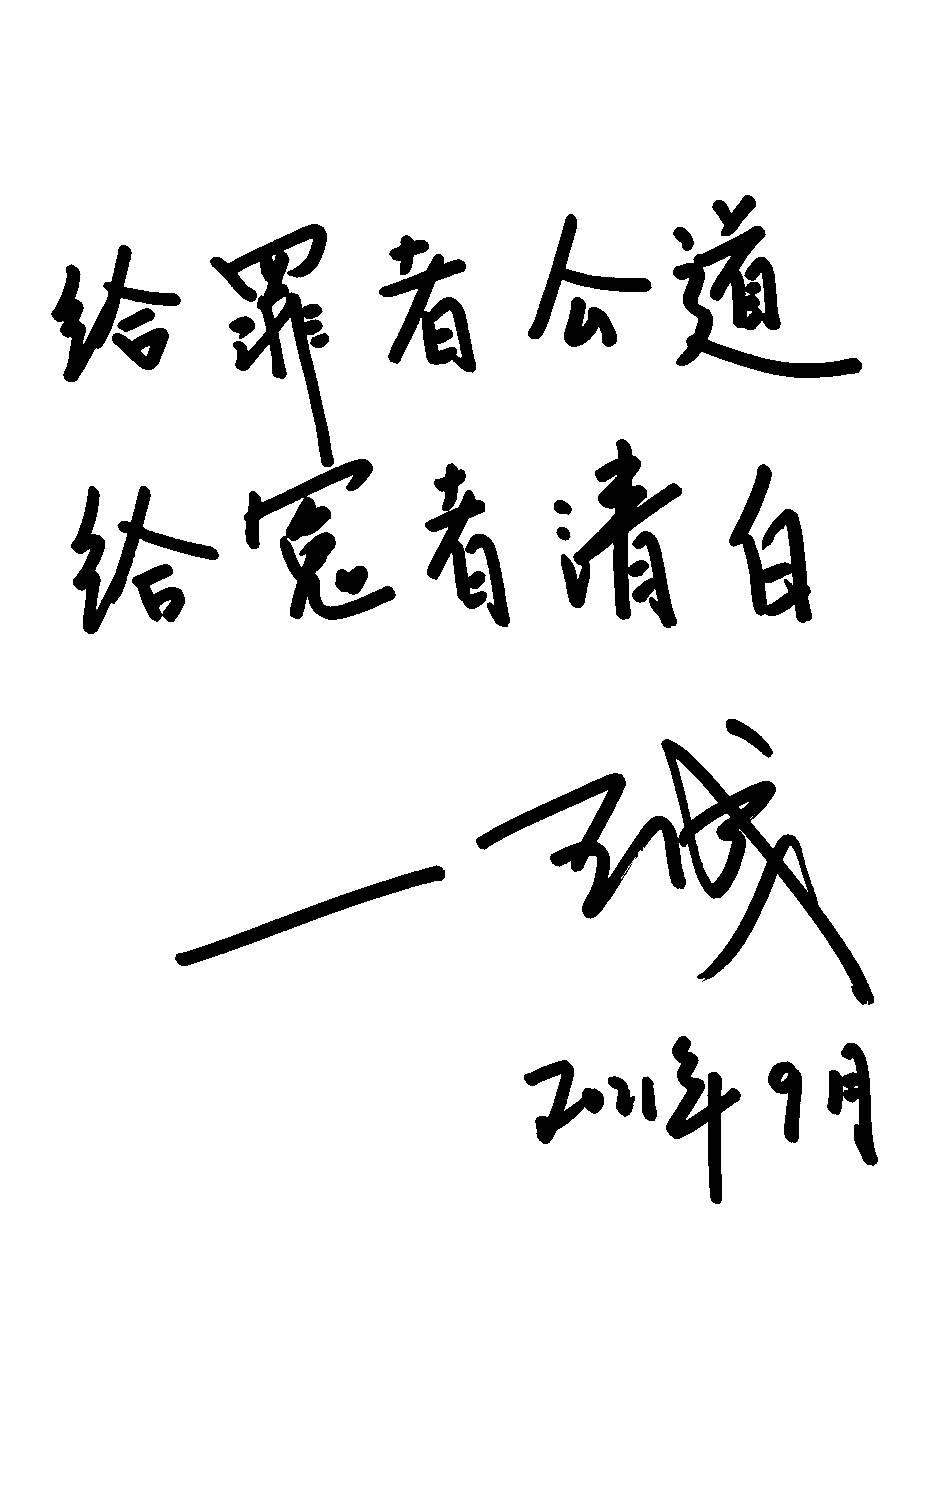 给罪者公道
给冤者清白
2021年9月